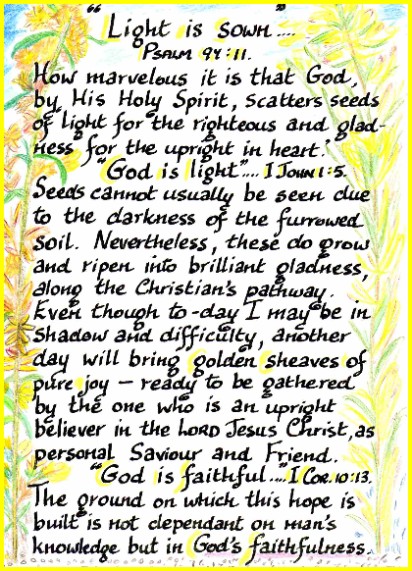 "Light is sown"....
PSALM 97:11.
How marvelous it is that God,
by His Holy Spirit, scatters seeds
of light for the righteous and glad-
ness for the upright in heart.'
"God is light".... I JOHN 1:5.
Seeds cannot usually be seen due
to the darkness of the furrowed
soil. Nevertheless, these do grow
and ripen into brilliant gladness,
along the Christian's pathway.
Even though to-day I may be in
shadow and difficulty, another
day will bring golden sheaves of
pure joy — ready to be gathered
by the one who is an upright
believer in the LORD Jesus Christ, as
personal Saviour and Friend.
"God is faithful...." I COR. 10:13.
The ground on which this hope is
built is not dependant on man's
knowledge but in God's faithfulness.